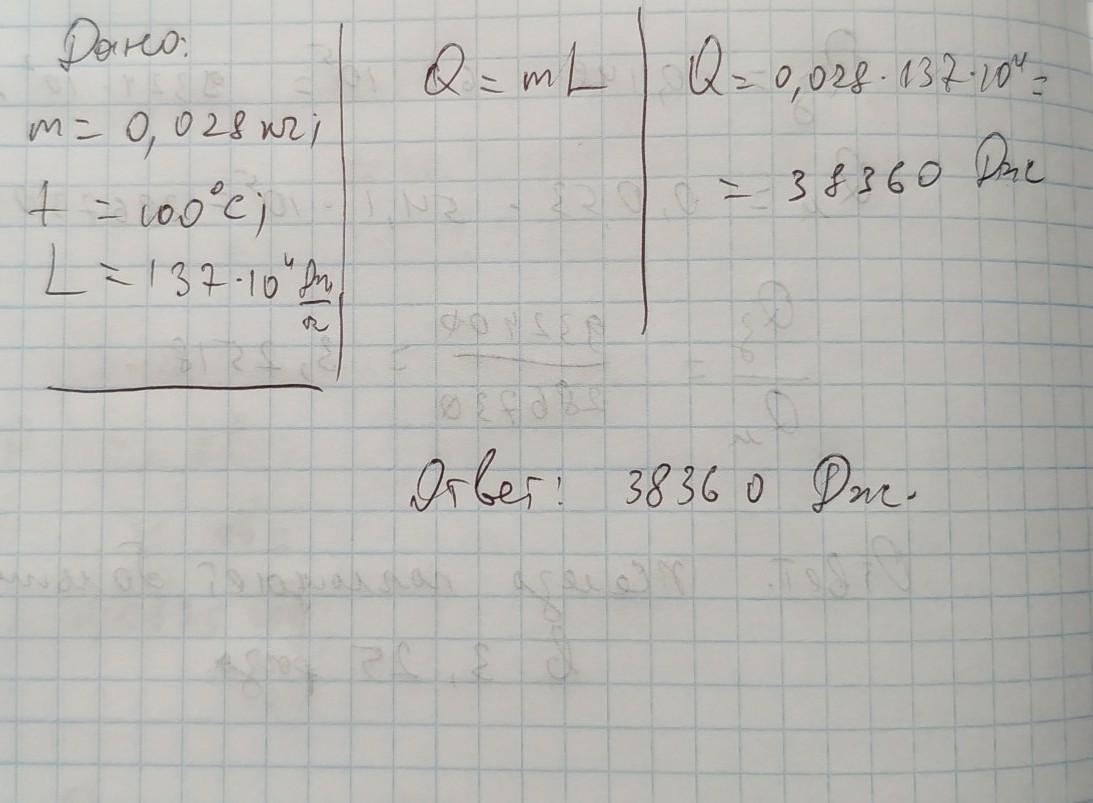 Дано:
m = 0,028 кг;
t = 100°C;
L = 137·10⁴ Дж/кг
Q = mL
Q = 0,028 · 137·10⁴ =
= 38360 Дж
Ответ: 38360 Дж.